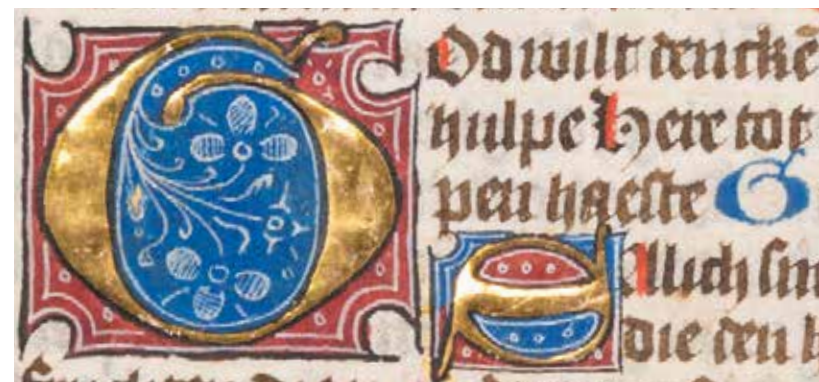 GOd wilt denckē
hulpe Here tot
pen haeste G
SAllich sin
die den h